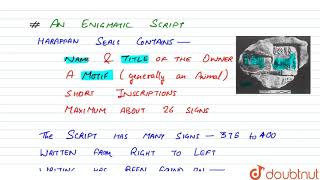 # AN ENIGMATIC SCRIPT
HARAPPAN SEALS CONTAINS —
NAME & TITLE OF THE OWNER
A MOTIF (GENERALLY AN ANIMAL)
SHORT INSCRIPTIONS
MAXIMUM ABOUT 26 SIGNS
THE SCRIPT HAS MANY SIGNS — 375 TO 400
WRITTEN FROM RIGHT TO LEFT
WRITING HAS BEEN FOUND ON —
doubtnut